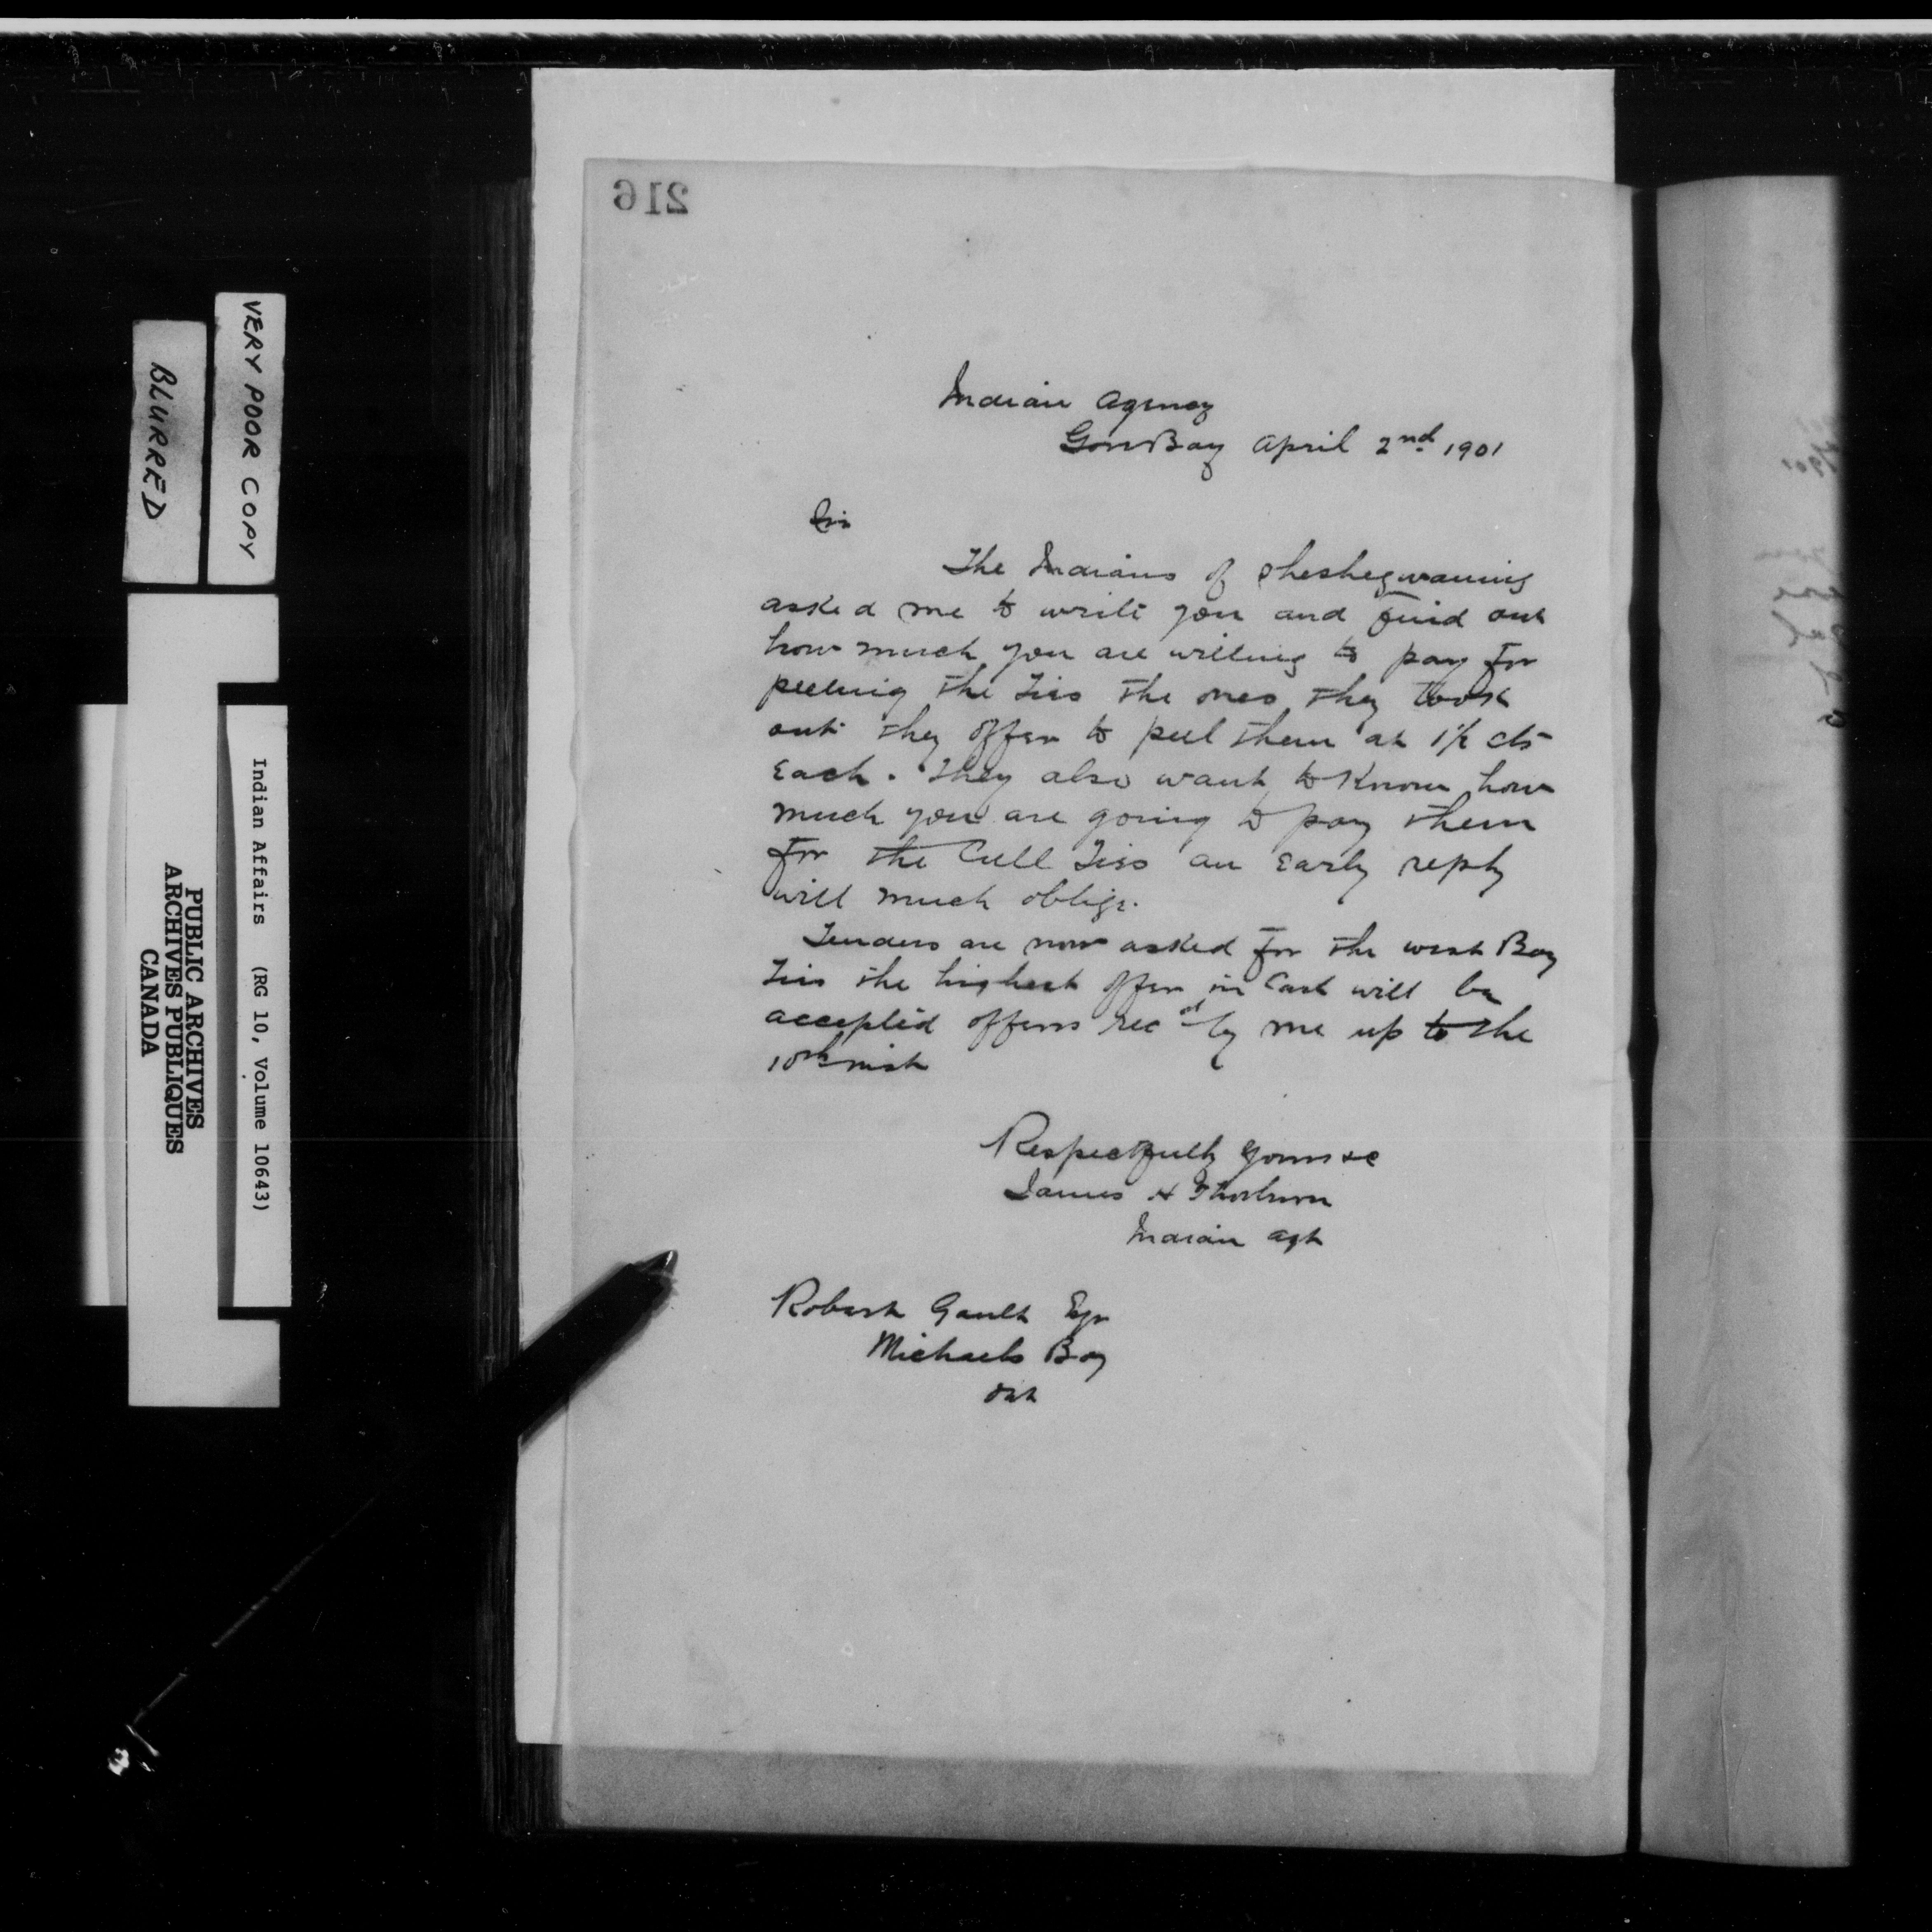 216
Indian Agency
Gore Bay April 2nd 1901
Sir
The Indians of Sheshegwaning
asked me to write you and find out
how much you are willing to pay for
peeling the Ties the ones they took
out they offer to peel them at 1½ cts
Each. They also want to Know how
much you are going to pay them
for the Cull Ties an Early reply
will much oblige.
Tenders are now asked for the west Bay
Ties the highest offer in Cash will be
accepted offers recd by me up to the
10th inst
Respectfully Yours &c
James H Thorburn
Indian Agt
Robert Gault Esqr
Michaels Bay
Ont
VERY POOR COPY
BLURRED
Indian Affairs (RG 10, Volume 10643)
PUBLIC ARCHIVES
ARCHIVES PUBLIQUES
CANADA